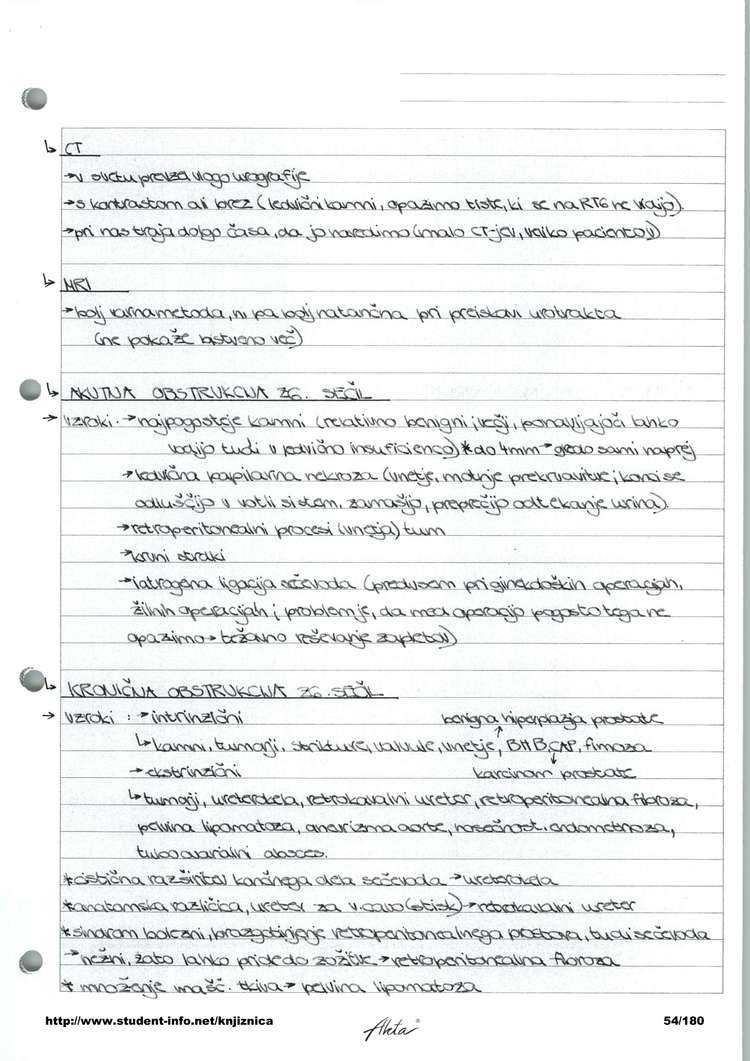 ↳ CT
→ v svetu prevzel vlogo urografije
→ s kontrastom ali brez (ledvični kamni, opazimo tiste, ki se na RTG ne vidijo)
→ pri nas traja dolgo časa, da jo naredimo (malo CT-jev, veliko pacientov)
↳ MRI
→ bolj varna metoda, ni pa bolj natančna pri preiskavi urotrakta
(ne pokaže bistveno več)
↳ AKUTNA OBSTRUKCIJA ZG. SEČIL
→ vzroki: → najpogosteje kamni (relativno benigni; večji, ponavljajoči lahko
vodijo tudi v ledvično insuficienco) * do 4mm → gredo sami naprej
→ ledvična papilarna nekroza (vnetje, motnje prekrvavitve; konci se
odluščijo v votli sistem, zamašijo, preprečijo odtekanje urina)
→ retroperitonealni procesi (vnetja) tum
→ krvni strdki
→ iatrogena ligacija sečevoda (predvsem pri ginekoloških operacijah,
žilnih operacijah; problem je, da med operacijo pogosto tega ne
opazimo → težavno reševanje zapletov)
↳ KRONIČNA OBSTRUKCIJA ZG. SEČIL
→ vzroki: → intrinzični benigna hiperplazija prostate
↳ kamni, tumorji, strikture, valvule, vnetje, BHP, CAP, fimoza
→ ekstrinzični karcinom prostate
↳ tumorji, ureterokela, retrokavalni ureter, retroperitonealna fibroza,
pelvina lipomatoza, anevrizma aorte, nosečnost, endometrioza,
tuboovarialni absces.
* cistična razširitev končnega dela sečevoda → ureterokela
* anatomska različica, ureter za v. cavo (stisk) → retrokavalni ureter
* sindrom bolezni, brazgotinjenje retroperitonealnega prostora, tudi sečevoda
→ nežni, zato lahko pride do zožitve → retroperitonealna fibroza
* množenje mašč. tkiva → pelvina lipomatoza
http://www.student-info.net/knjiznica Ahta 54/180